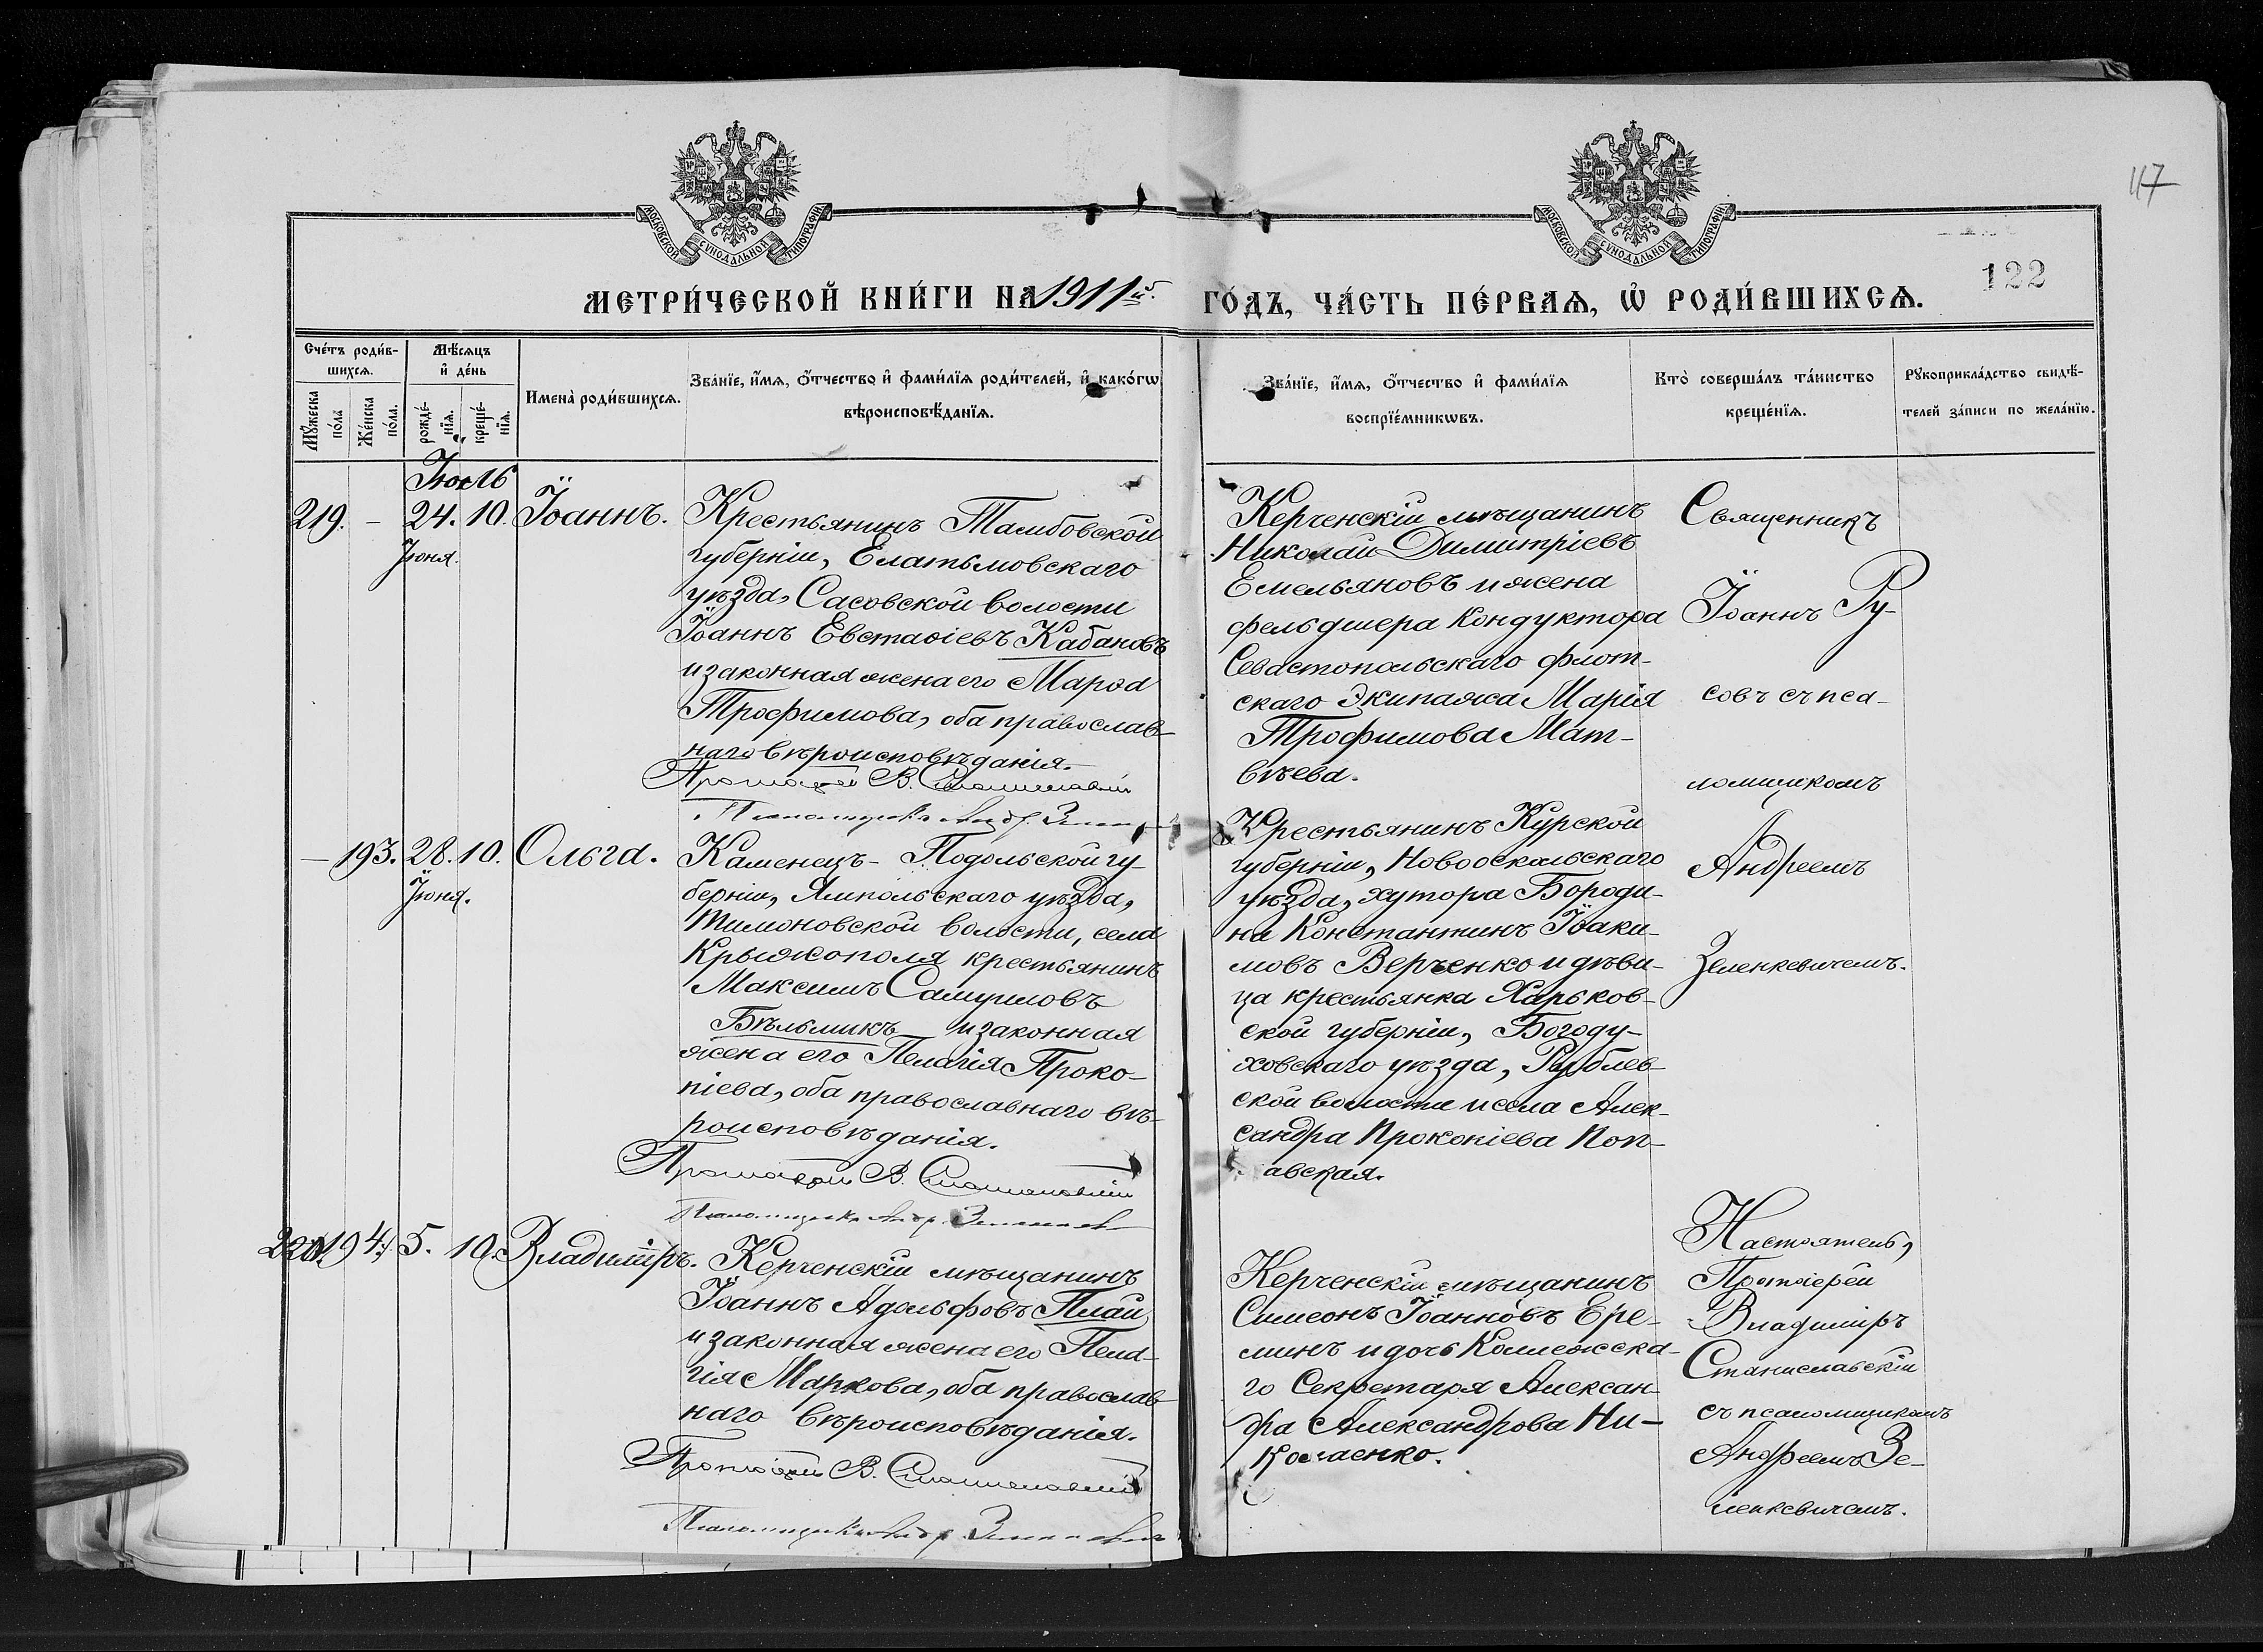 117
МОСКОВСКОЙ СѴНОДАЛЬНОЙ ТИПОГРАФІИ
МОСКОВСКОЙ СѴНОДАЛЬНОЙ ТИПОГРАФІИ
122
МЕТРИ́ЧЕСКОЙ КНИ́ГИ НА 1911й. ГО́ДЪ, ЧА́СТЬ ПЕ́РВАѦ, Ѿ РОДИ́ВШИХСѦ.
Сче́тъ роди́в-
шихсѧ.
Мꙋ́жеска
по́ла
Же́нска
по́ла.
Мѣ́сѧцъ
и҆ де́нь
рожде́-
нїѧ.
креще́-
нїѧ.
Имена̀ роди́вшихсѧ.
Зва́нїе, и҆́мѧ, ѻ҆́тчество и҆ фами́лїѧ роди́телей, и҆ како́гѡ
вѣроисповѣ́данїѧ.
Зва́нїе, и҆́мѧ, ѻ҆́тчество и҆ фами́лїѧ
воспрїе́мникѡвъ.
Кто̀ соверша́лъ та́инство
креще́нїѧ.
Рꙋкоприкла́дство свидѣ́-
телей за́писи по жела́нїю.
Іюль
219. – 24. 10. Іоаннъ.
Іюня.
Крестьянинъ Тамбовской
губерніи, Елатьмовскаго
уѣзда, Сасовской волости
Іоаннъ Евстаѳіевъ Кабановъ
и законная жена его Марѳа
Трофимова, оба православ-
наго вѣроисповѣданія.
Протоіерей В. Станиславскій
Псаломщикъ Андр. Зеленкевичъ
Керченскій мѣщанинъ
Николай Димитріевъ
Емельяновъ и жена
фельдшера Кондуктора
Севастопольскаго флот-
скаго Экипажа Марія
Трофимова Мат-
вѣева.
Священникъ
Іоаннъ Ру-
совъ съ пса-
ломщикомъ
Андреемъ
Зеленкевичемъ.
– 193. 28. 10. Ольга.
Іюня.
Каменецъ-Подольской гу-
берніи, Ямпольскаго уѣзда,
Тимоновской волости, села
Крыжополя крестьянинъ
Максимъ Самуиловъ
Бѣльмикъ и законная
жена его Пелагія Проко-
піева, оба православнаго вѣ-
роисповѣданія.
Протоіерей В. Станиславскій
Псаломщикъ Андр. Зеленкевичъ
Крестьянинъ Курской
губерніи, Новооскольскаго
уѣзда, хутора Бороди-
на Константинъ Іоаки-
мовъ Верченко и дѣви-
ца крестьянка Харьков-
ской губерніи, Богоду-
ховскаго уѣзда, Рублев-
ской волости и села Алек-
сандра Прокопіева Поп-
авская.
220. 194. 5. 10. Владиміръ.
Керченскій мѣщанинъ
Іоаннъ Адольфовъ Плай
и законная жена его Пела-
гія Маркова, оба православ-
наго вѣроисповѣданія.
Протоіерей В. Станиславскій
Псаломщикъ Андр. Зеленкевичъ
Керченскій мѣщанинъ
Симеонъ Іоанновъ Ере-
минъ и дочь Коллежска-
го Секретаря Алексан-
дра Александрова Ни-
колаенко.
Настоятель,
Протоіерей
Владиміръ
Станиславскій
съ псаломщикомъ
Андреемъ Зе-
ленкевичемъ.